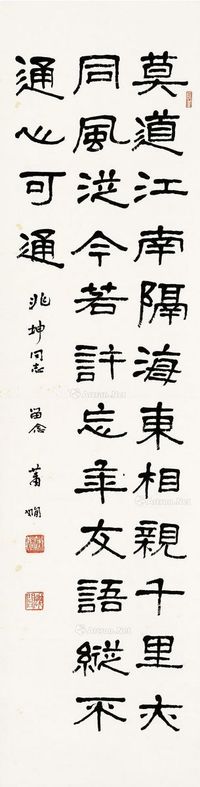 莫道江南隔海東相親千里亦
同風從今若許忘年友語縱不
通心可通
兆坤同志 留念 蕭嫻